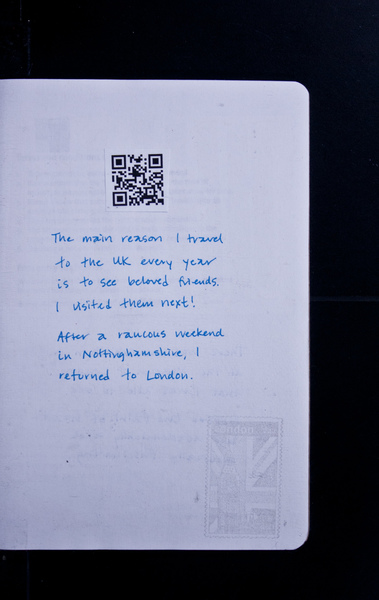 The main reason I travel
to the UK every year
is to see beloved friends.
I visited them next!
After a raucous weekend
in Nottinghamshire, I
returned to London.